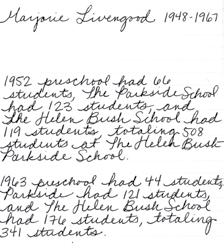 Marjorie Livengood 1948-1967
1952 preschool had 66
students, The Parkside School
had 123 students, and
the Helen Bush School had
119 students, totaling 508
students at The Helen Bush-
Parkside School.
1963 preschool had 44 students,
Parkside had 121 students,
and The Helen Bush School
had 176 students, totaling
341 students.